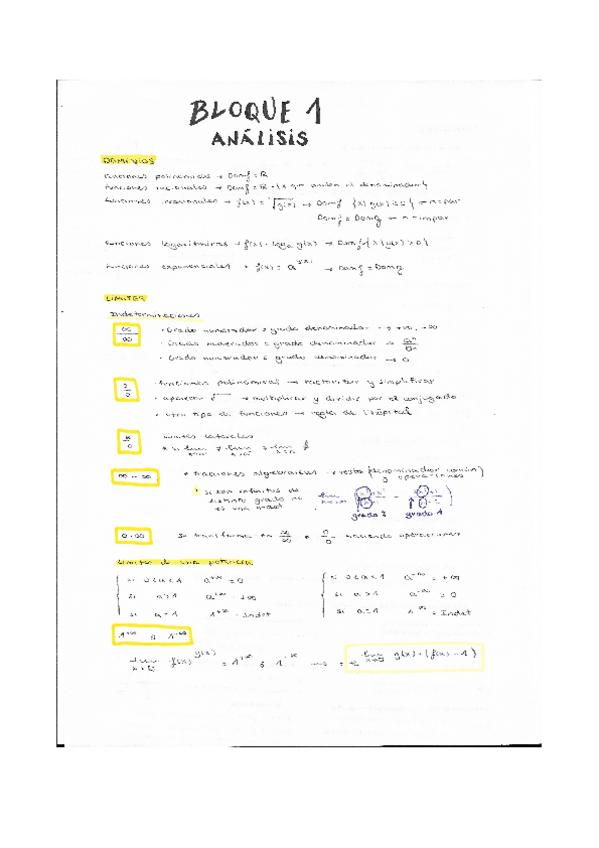 BLOQUE 1
ANÁLISIS
DOMINIOS
Funciones polinómicas → Dom f = R
Funciones racionales → Dom f = R - {x que anulan el denominador}
Funciones irracionales → f(x) = ⁿ√g(x) → Dom f {x| g(x) ≥ 0} → n = par
Dom f = Dom g → n = impar
Funciones logarítmicas → f(x) = log_a g(x) → Dom f {x| g(x) > 0}
Funciones exponenciales → f(x) = a^g(x) → Dom f = Dom g
LÍMITES
Indeterminaciones
∞/∞ · Grado numerador > grado denominador → +∞, -∞
· Grado numerador = grado denominador →
· Grado numerador < grado denominador → 0
0/0 · funciones polinómicas → factorizar y simplificar
· aparecen √ → multiplicar y dividir por el conjugado
· otro tipo de funciones → regla de L'Hôpital
Límites laterales
∞ - ∞ · Fracciones algebraicas → resta (denominador común) y operaciones
· si son infinitos de distinto grado no es una indet
grado 2 grado 1
0 · ∞ Se transforma en ∞/∞ o 0/0 haciendo operaciones
Límites de una potencia
si 0<a<1 a^+∞ = 0 si 0<a<1 a^-∞ = +∞
si a>1 a^+∞ = +∞ si a>1 a^-∞ = 0
si a=1 1^+∞ = Indet si a=1 1^-∞ = Indet
1^+∞ ó 1^-∞
lim f(x)^g(x) = 1^+∞ ó 1^-∞ = e^lim g(x) · (f(x) - 1)